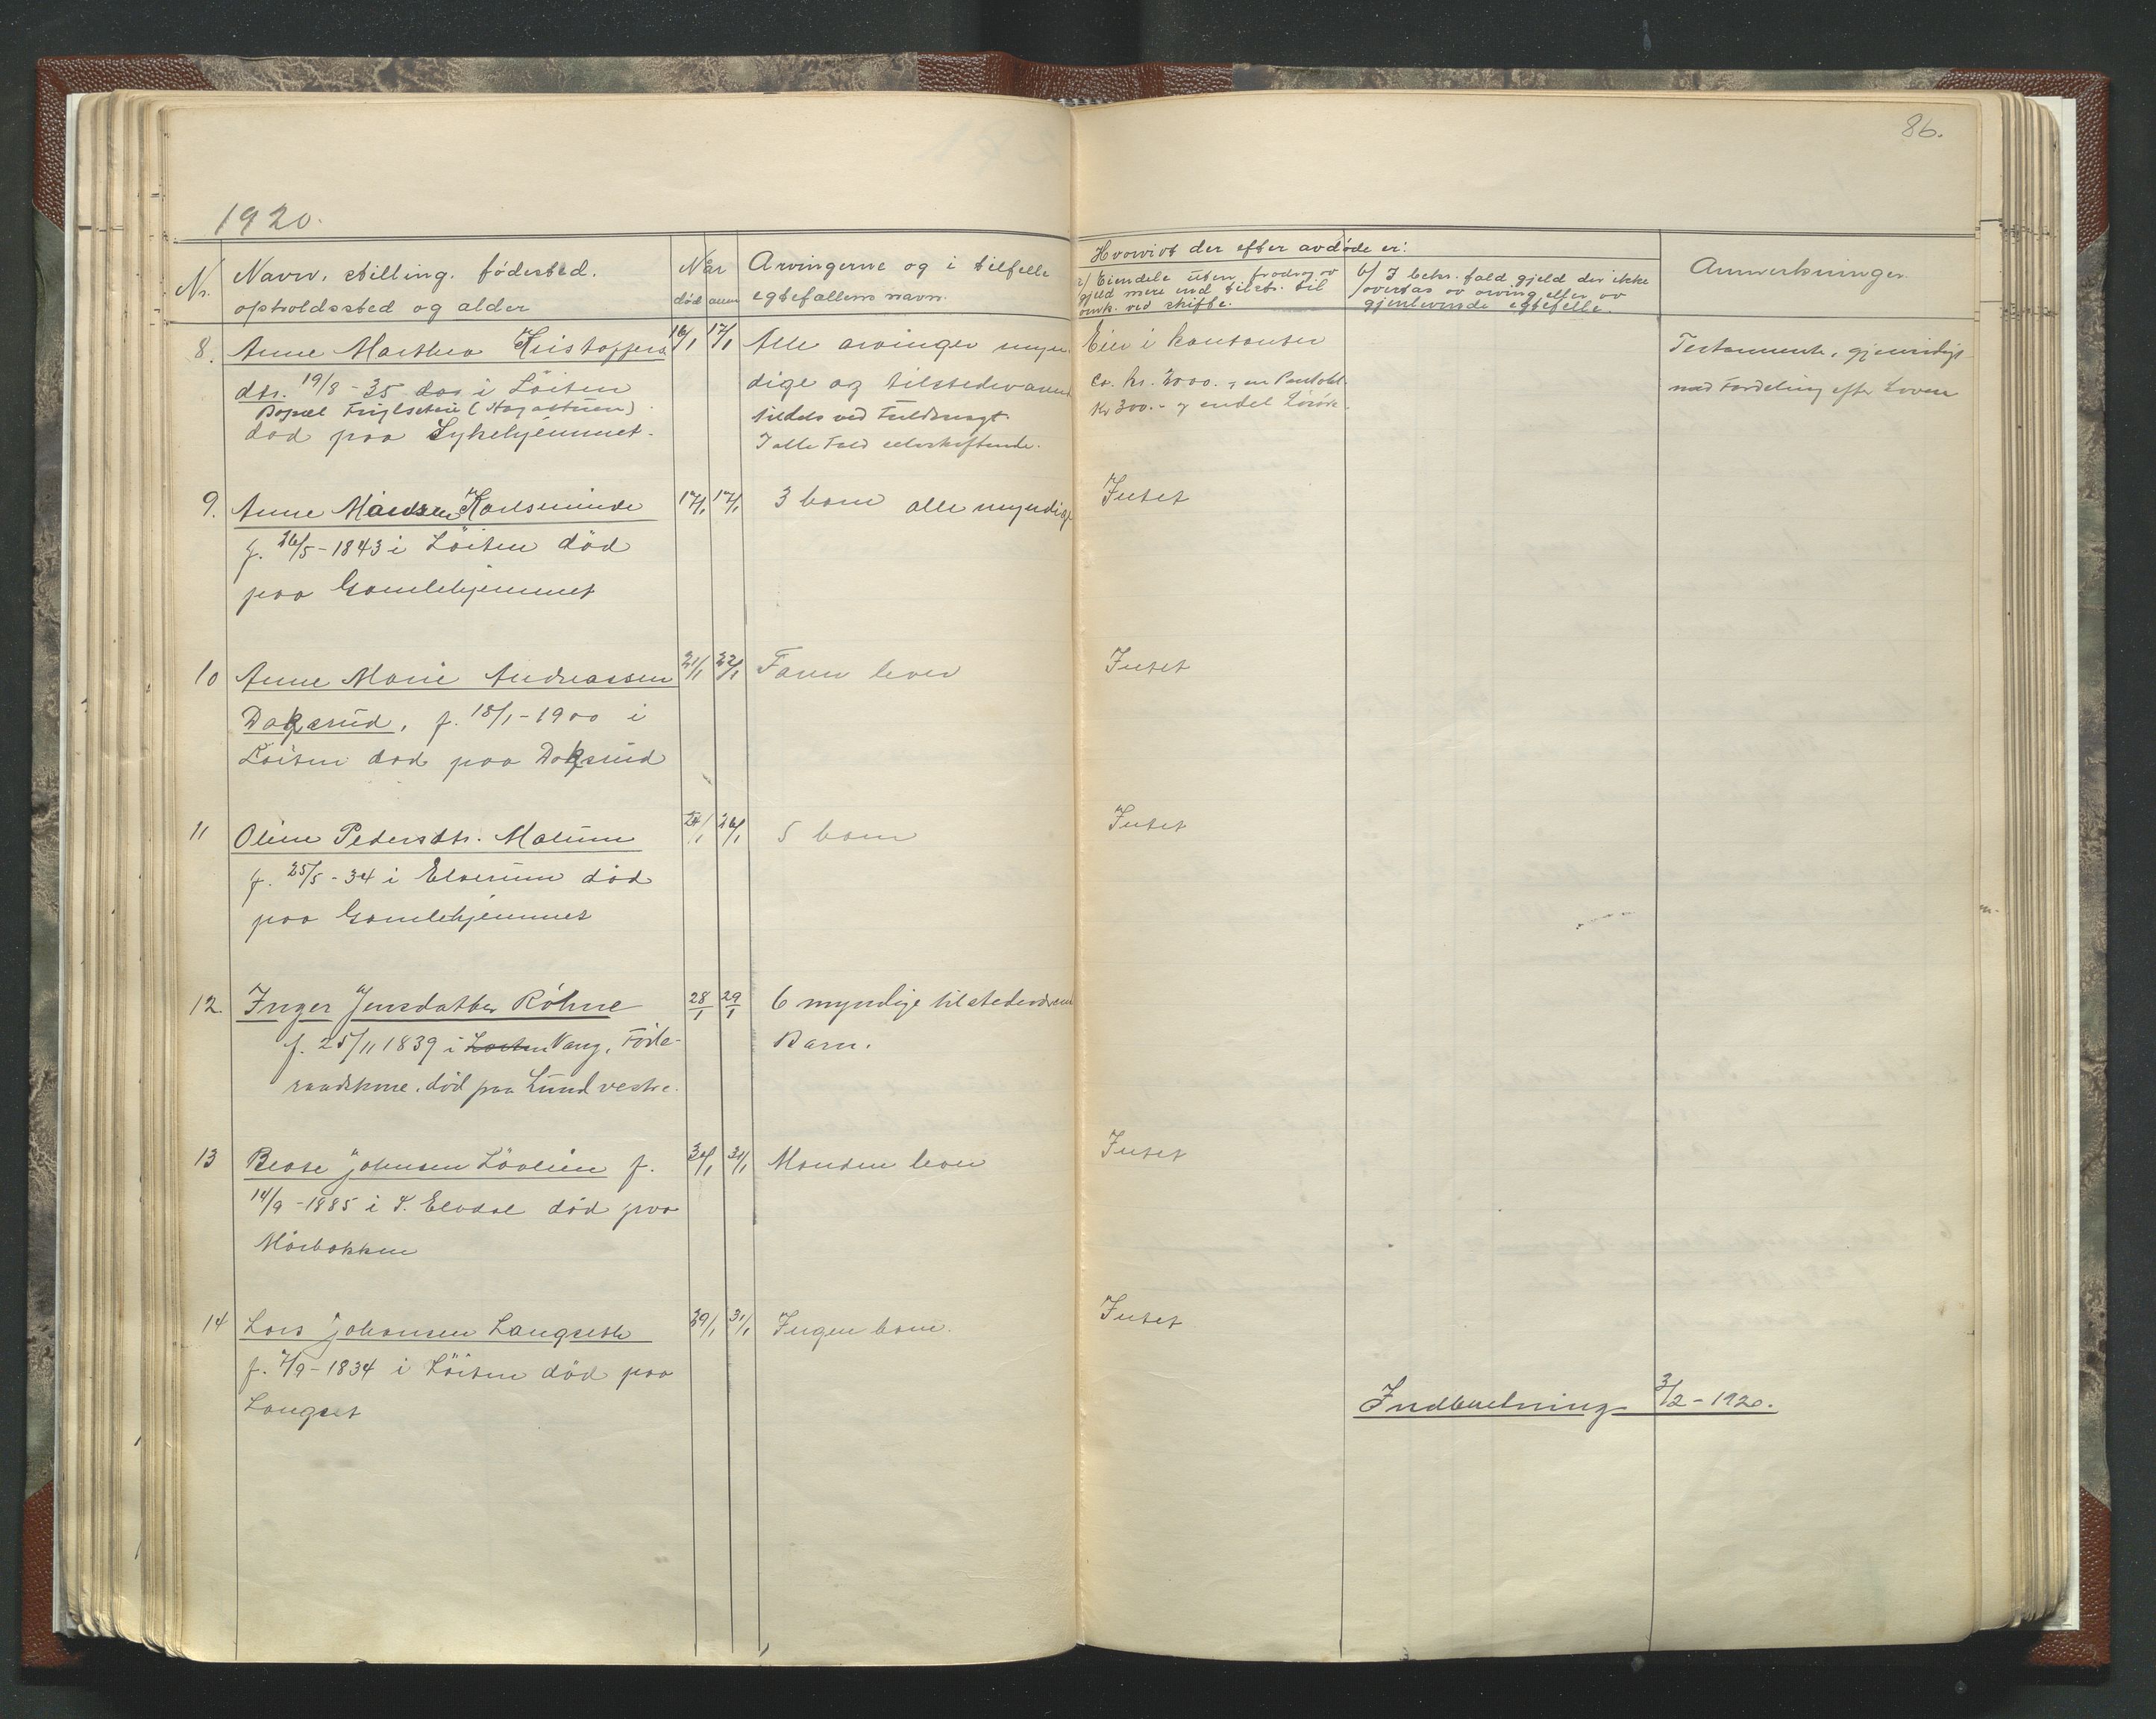 86.
1920.
Nr.
Navn, stilling, fødested,
opholdssted og alder
Når
død
anm
Arvingerne og i tilfelle
egtefællens navn.
Hvorvidt der efter avdøde er:
a/ Eiendele uten fradrag av
gjeld mere end tilstr. til
omk. ved skifte.
b/ I bekr. fald gjeld der ikke
overtas av arving eller av
gjenlevende egtefelle.
Anmerkninger.
8. Anne Marthea Kristoffers
dtr. 19/8-35 i Löiten
Bopæl
død paa Sykehjemmet.
16/1 17/1
Alle arvinger myn
dige og tilstedeværend
tildels ved Fuldmagt.
I alle Fald selvskiftende.
Eier i kontanter
Ca. kr. 2000.- en Pantobl.
Kr 300.- og endel Lösöre.
Testamente, gjensidigt
med Fordeling efter Loven
9. Anne Madsen Karlsminde
f. 26/5-1843 i Löiten död
paa Gamlehjemmet
17/1 17/1
3 barn alle myndige
Intet
10 Anne Marie Andreassen
Daksrud, f. 18/1-1900 i
Löiten død paa Daksrud
21/1 22/1
Faren lever
Intet
11 Oline Pedersdtr. Malum
f. 25/5-34 i Elverum död
paa Gamlehjemmet
24/1 26/1
5 barn
Intet
12. Inger Jensdatter Röhne
f. 25/11 1839 i Löiten Vang, Föde-
raadskone. död paa Lund vestre.
28/1 29/1
6 myndige tilstedeværen
Barn.
13 Beate Johnsen Lövlien f.
14/9-1885 i S. Elvdal död paa
Mörbakken
30/1 31/1
Manden lever
Intet
14 Lars Johansen Langseth
f. 7/9-1834 i Löiten död paa
Langset
29/1 31/1
Ingen barn.
Intet
Indberetning 3/2-1920.